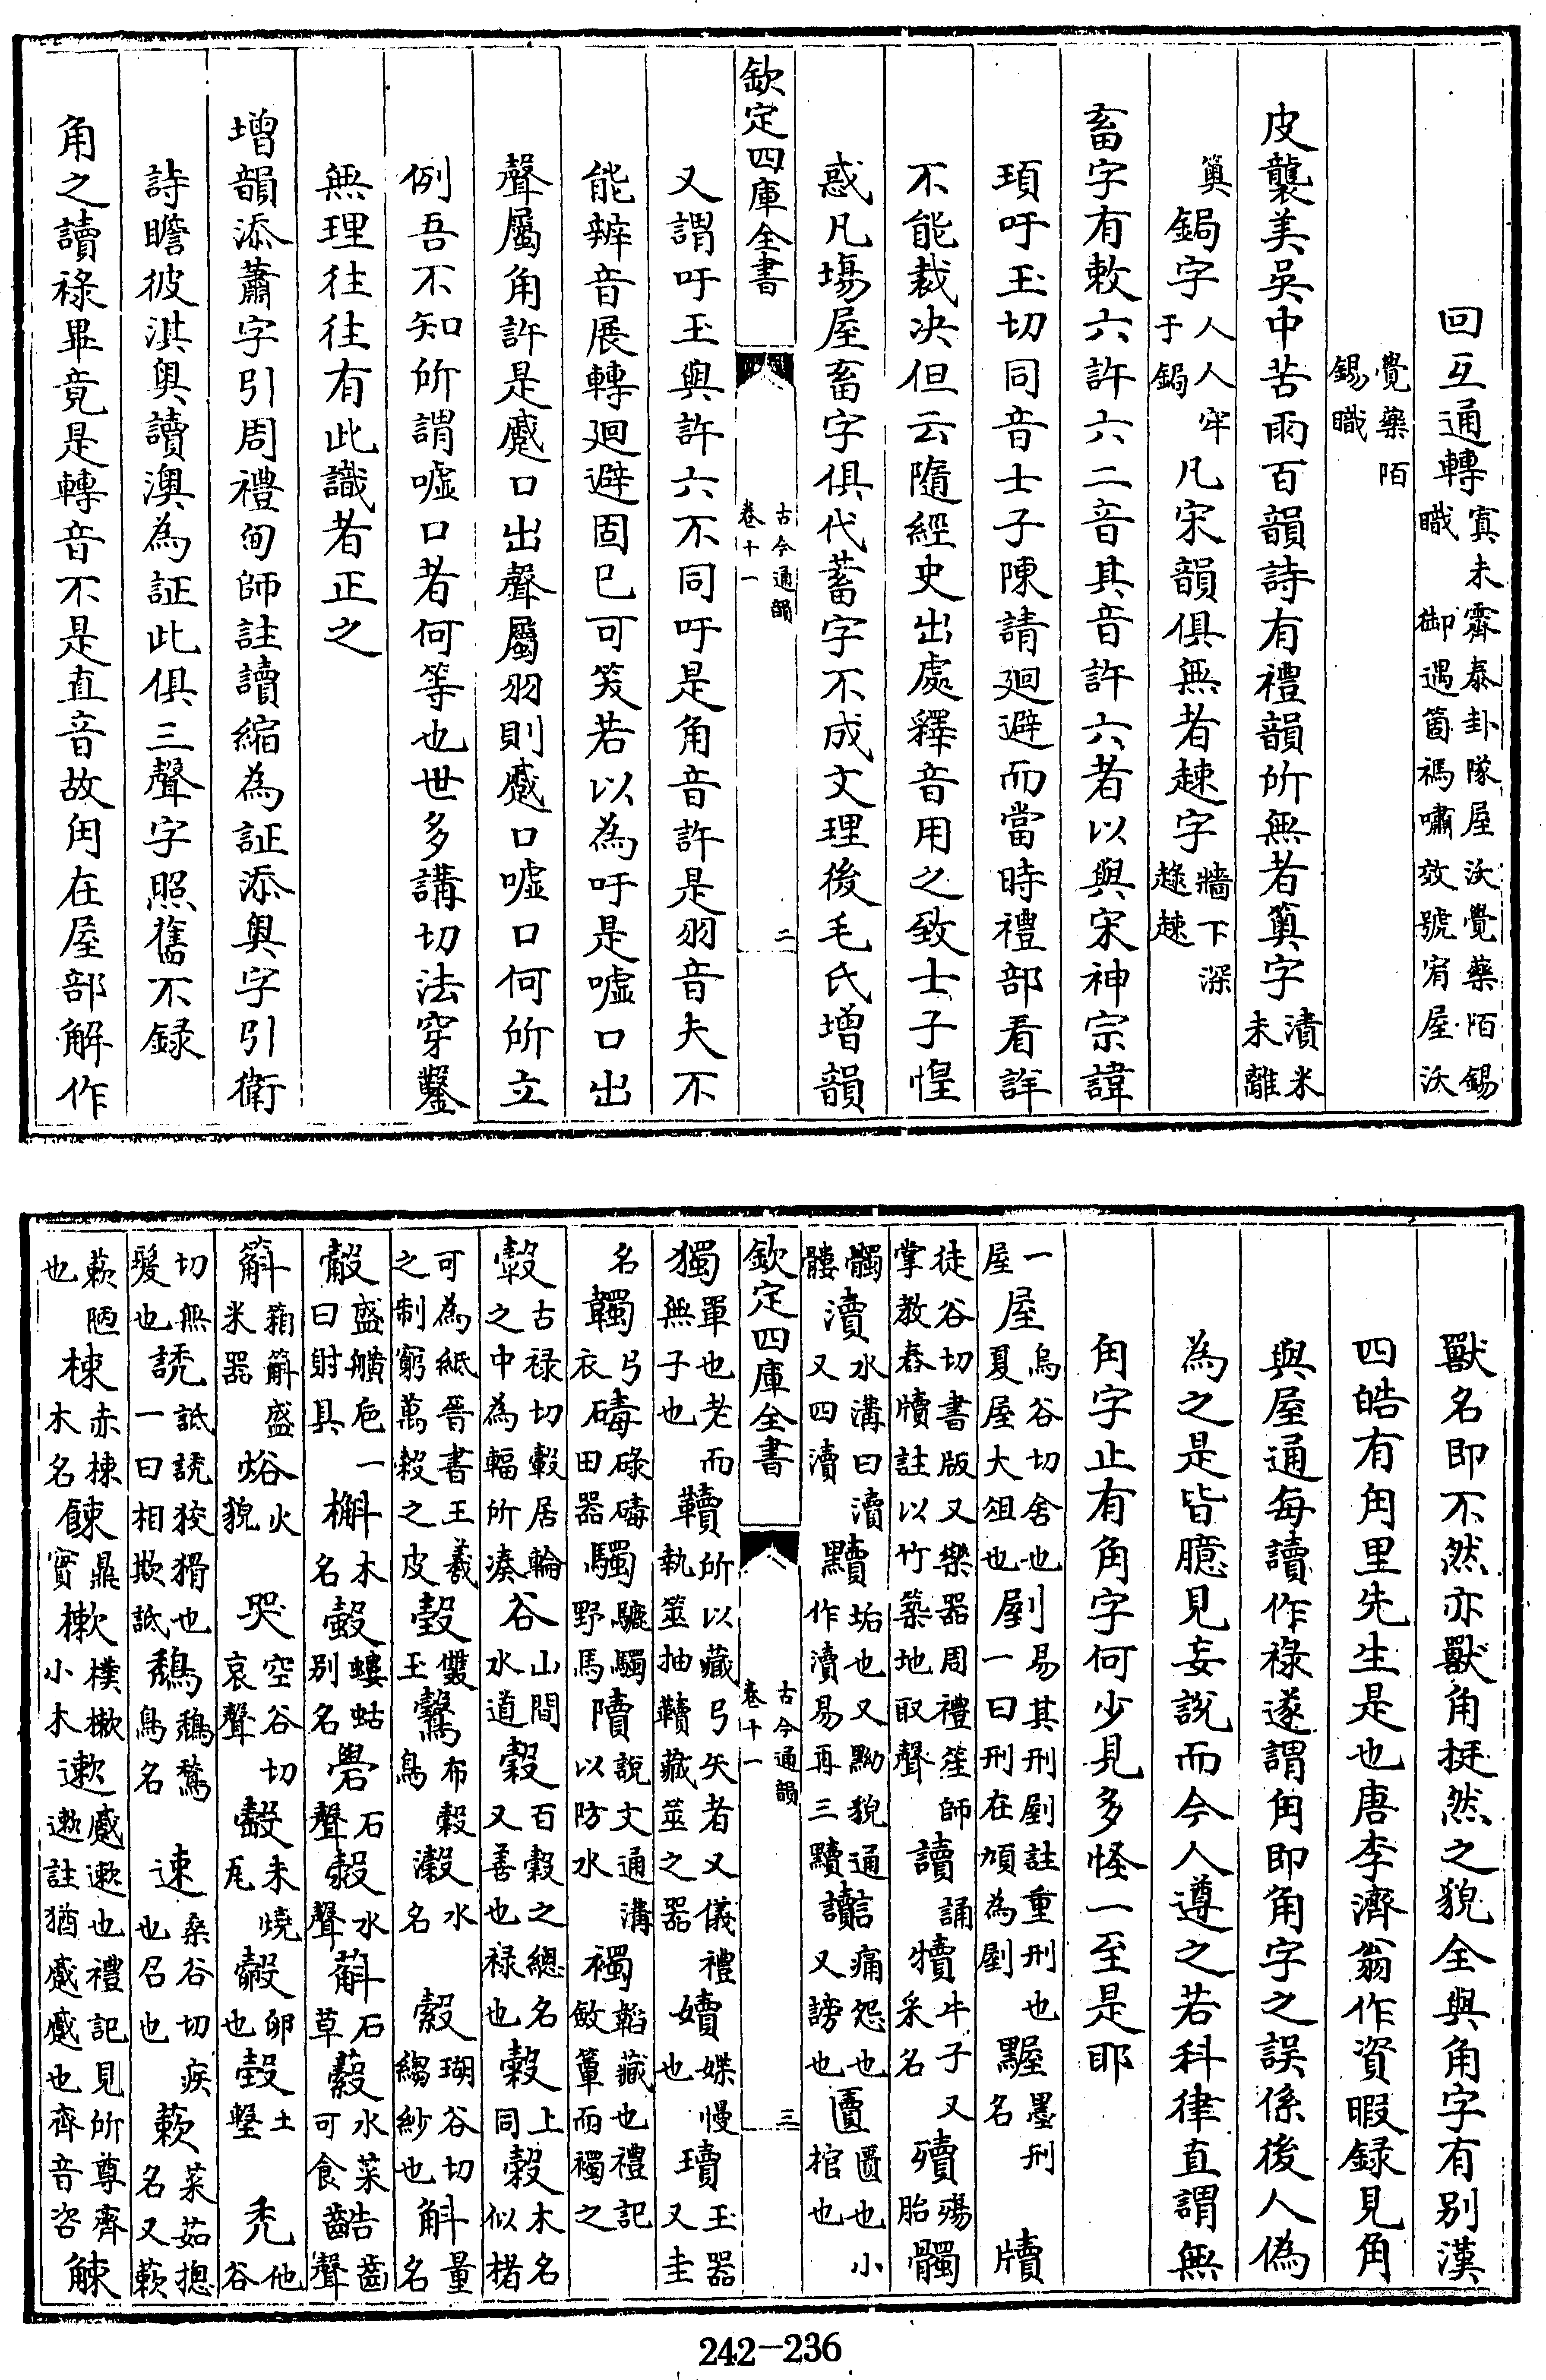 回互通轉寘未霽泰卦隊屋沃覺藥陌錫職　御遇箇禡嘯效號宥屋沃
覺藥陌錫職
皮襲美吳中苦雨百韻詩有禮韻所無者䉛字漬米未離
䉛鋦字人人牢于鋦凡宋韻俱無者趚字牆下深趢趚
畜字有敕六許六二音其音許六者以與宋神宗諱
頊吁玉切同音士子陳請廻避而當時禮部看詳
不能裁决但云隨經史出處釋音用之致士子惶
惑凡場屋畜字俱代蓄字不成文理後毛氏增韻
欽定四庫全書　古今通韻卷十一　二
又謂吁玉與許六不同吁是角音許是羽音夫不
能辨音展轉廻避固已可笑若以為吁是嘘口出
聲屬角許是蹙口出聲屬羽則蹙口嘘口何所立
例吾不知所謂嘘口者何等也世多講切法穿鑿
無理往往有此識者正之
增韻添蕭字引周禮甸師註讀縮為証添奥字引衛
詩瞻彼淇奥讀澳為証此俱三聲字照舊不録
角之讀祿畢竟是轉音不是直音故甪在屋部解作
獸名即不然亦獸角挺然之貌全與角字有别漢
四皓有甪里先生是也唐李濟翁作資暇録見角
與屋通每讀作祿遂謂甪即角字之誤係後人偽
為之是皆臆見妄說而今人遵之若科律直謂無
甪字止有角字何少見多怪一至是耶
一屋屋烏谷切舍也夏屋大俎也剭易其刑剭註重刑也一曰刑在頄為剭䵫墨刑名　牘
徒谷切書版又樂器周禮笙師掌教舂牘註以竹築地取聲讀誦犢牛子又采名殰殤胎髑
髑髏瀆水溝曰瀆又四瀆黷垢也又黝貌通作瀆易再三黷讟痛怨也又謗也匵匱也小棺也
欽定四庫全書　古今通韻卷十一　三
獨單也老而無子也韇所以藏弓矢者又儀禮執筮抽韇藏筮之器嬻媟慢也瓄玉器又圭
名韣弓衣碡碌碡田器騳驢騳野馬隫說文通溝以防水襡韜藏也禮記斂簟而襡之
轂古禄切轂居輪之中為輻所湊谷山間水道穀百穀之總名又善也禄也榖上同榖木名似楮
可為紙晉書王羲之制窮萬榖之皮瑴雙玉鷇布穀鳥瀔水名　縠瑚谷切縐紗也斛量名
觳盛觵巵一曰射具槲木名螜螻蛄别名礐石聲㶜水聲蔛石草薣水菜可食䶜齒聲
䈰䈰盛米器焀火貌　哭空谷切哀聲㱿未燒瓦㲉卵也㱿土墼　禿他谷
切無髮也䛢詆䛢狡猾也一曰相欺詆鵚鵚鶖鳥名　速桑谷切疾也召也蔌菜茹摠名又蔌
蔌陋也梀赤梀木名餗鼎實樕樸樕小木遬蹙遬也禮記見所尊齊遬註猶蹙蹙也齊音咨觫
242-236